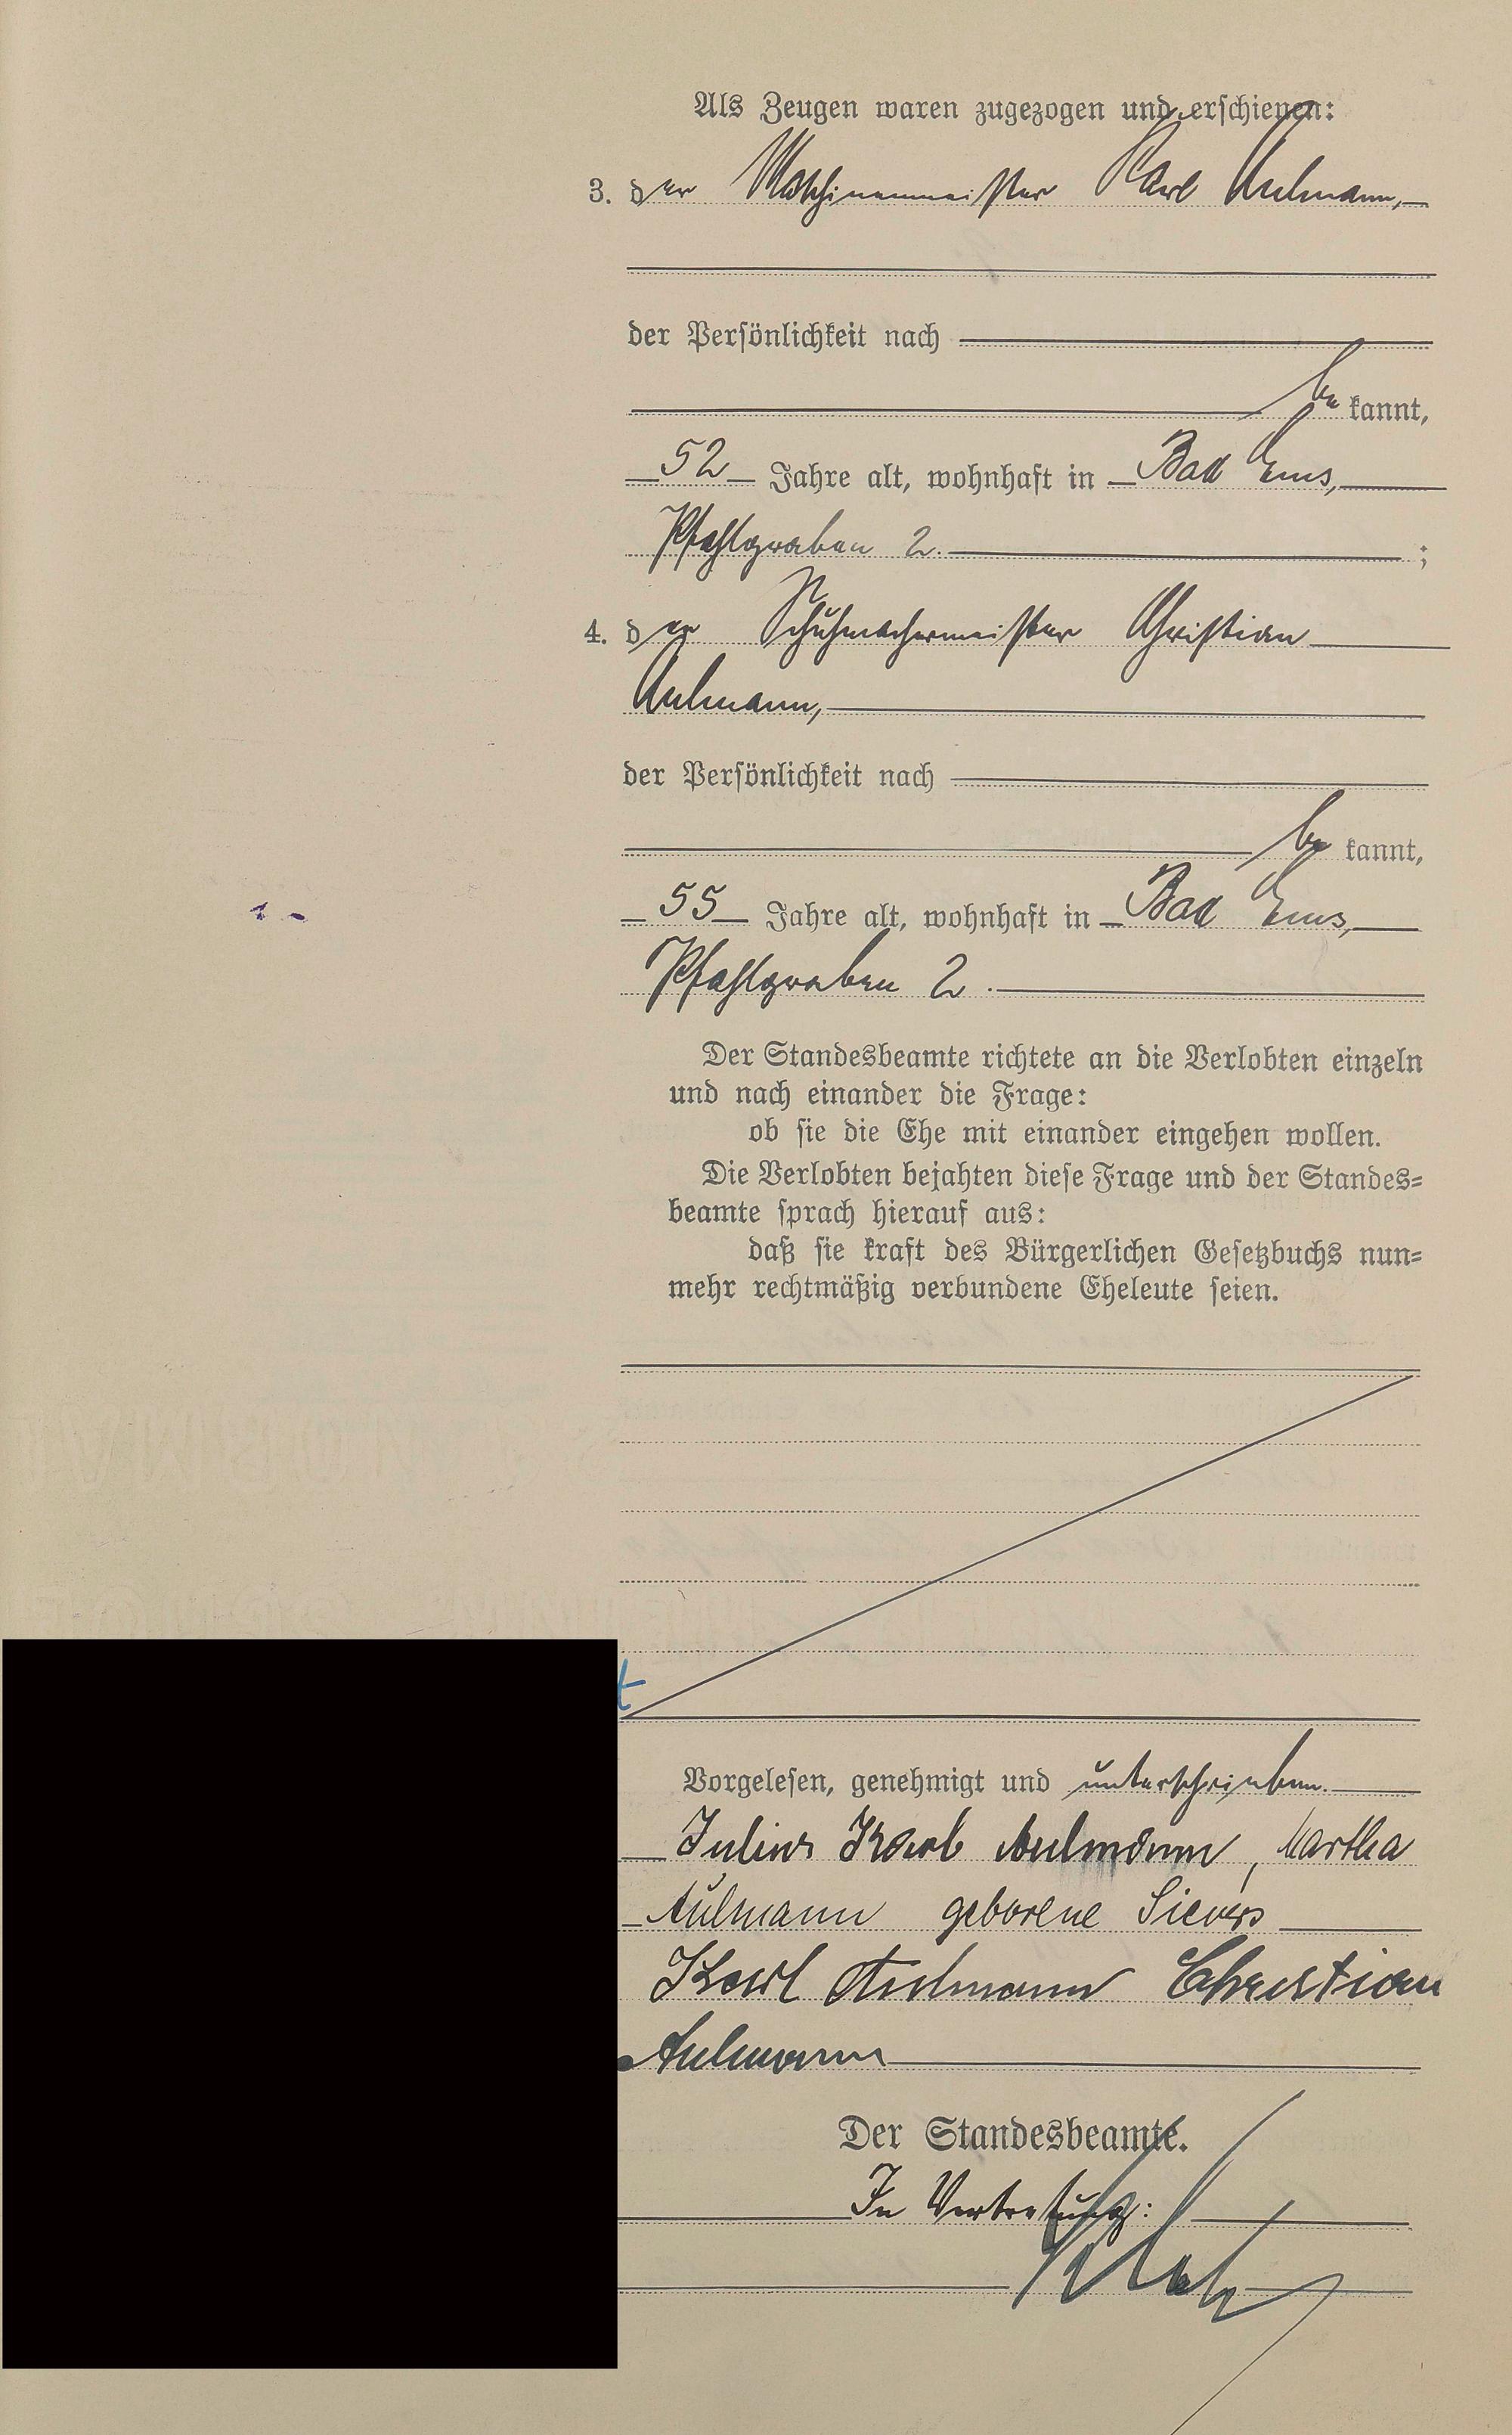 Als Zeugen waren zugezogen und erschienen:
3. der Maschinenmeister Karl Aulmann,
der Persönlichkeit nach
be kannt,
52 Jahre alt, wohnhaft in Bad Ems,
Pfahlgraben 2. ;
4. der Schuhmachermeister Christian
Aulmann,
der Persönlichkeit nach
be kannt,
55 Jahre alt, wohnhaft in Bad Ems,
Pfahlgraben 2.
Der Standesbeamte richtete an die Verlobten einzeln
und nach einander die Frage:
ob sie die Ehe mit einander eingehen wollen.
Die Verlobten bejahten diese Frage und der Standes-
beamte sprach hierauf aus:
daß sie kraft des Bürgerlichen Gesetzbuchs nun-
mehr rechtmäßig verbundene Eheleute seien.
Vorgelesen, genehmigt und unterschrieben.
Julius Karl Aulmann, Martha
Aulmann geborene Sievers
Karl Aulmann Christian
Aulmann
Der Standesbeamte.
In Vertretung: